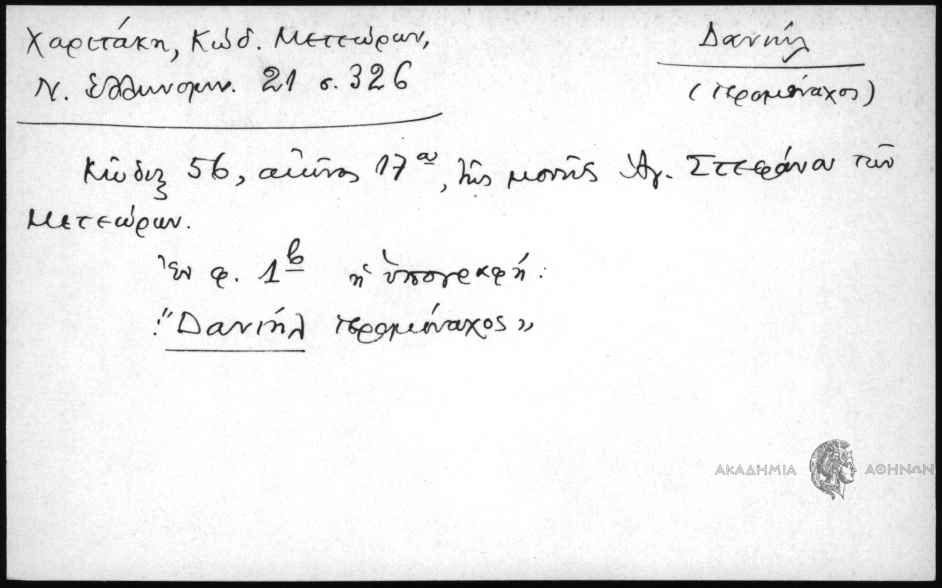 Χαριτάκη, Κώδ. Μετεώρων,
Ν. Ἑλληνομν. 21 σ. 326
Δανιήλ
(ἱερομόναχος)
Κῶδιξ 56, αἰῶνος 17ου, τῆς μονῆς Ἁγ. Στεφάνου τῶν
Μετεώρων.
Ἐν φ. 1β ἡ ὑπογραφή:
"Δανιήλ ἱερομόναχος»
ΑΚΑΔΗΜΙΑ ΑΘΗΝΩΝ